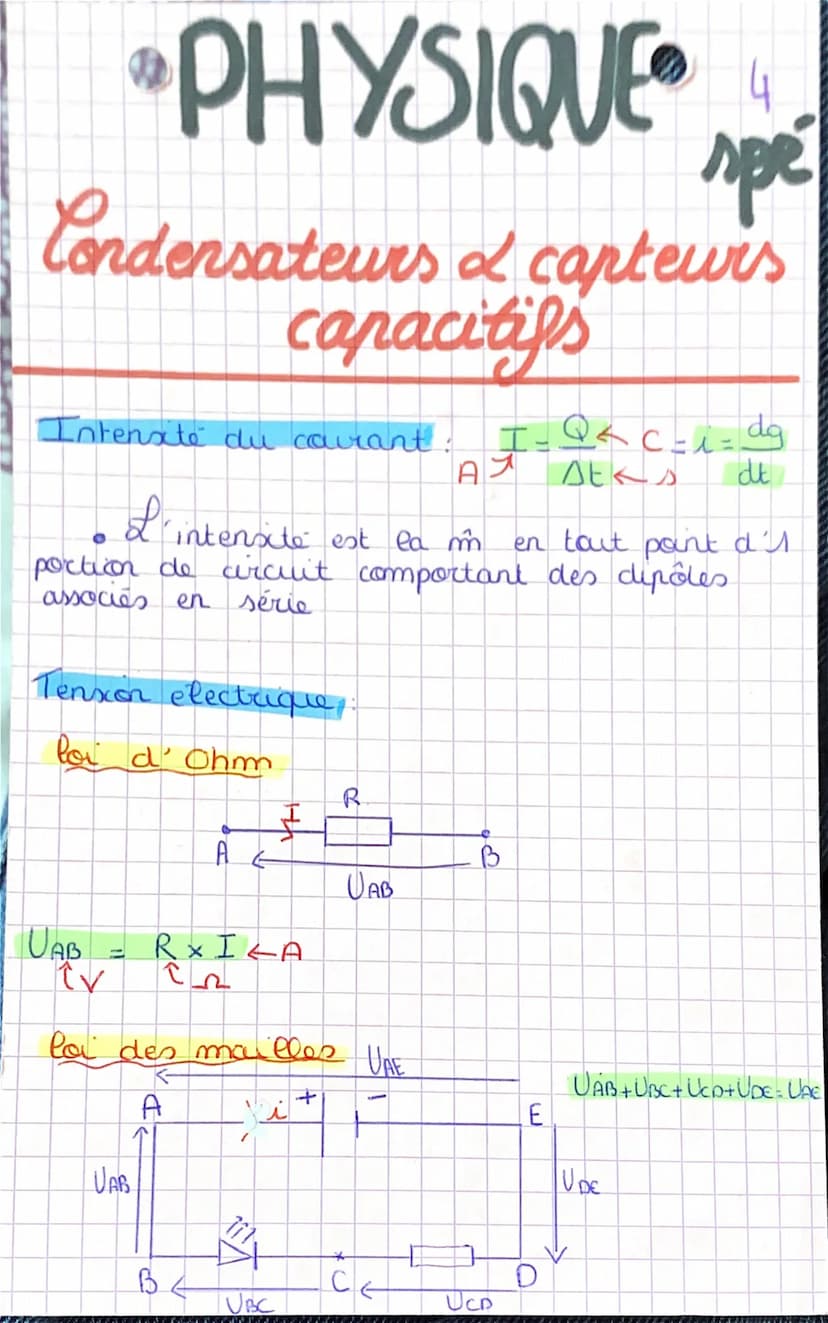 • PHYSIQUE •
4
spé
Condensateurs & capteurs
capacitifs
Intensité du courant : I = Q ← C = i = dq
A ↗ Δt ← s dt
• L'intensité est la m̂ en tout point d'1
portion de circuit comportant des dipôles
associés en série
Tension electrique :
loi d'Ohm
I R
A B
UAB
UAB = R × I ← A
↑ V ↑ Ω
loi des mailles UAE
UAB+UBC+UCD+UDE=UAE
A i + - E
UAB UDE
B C D
UBC UCD